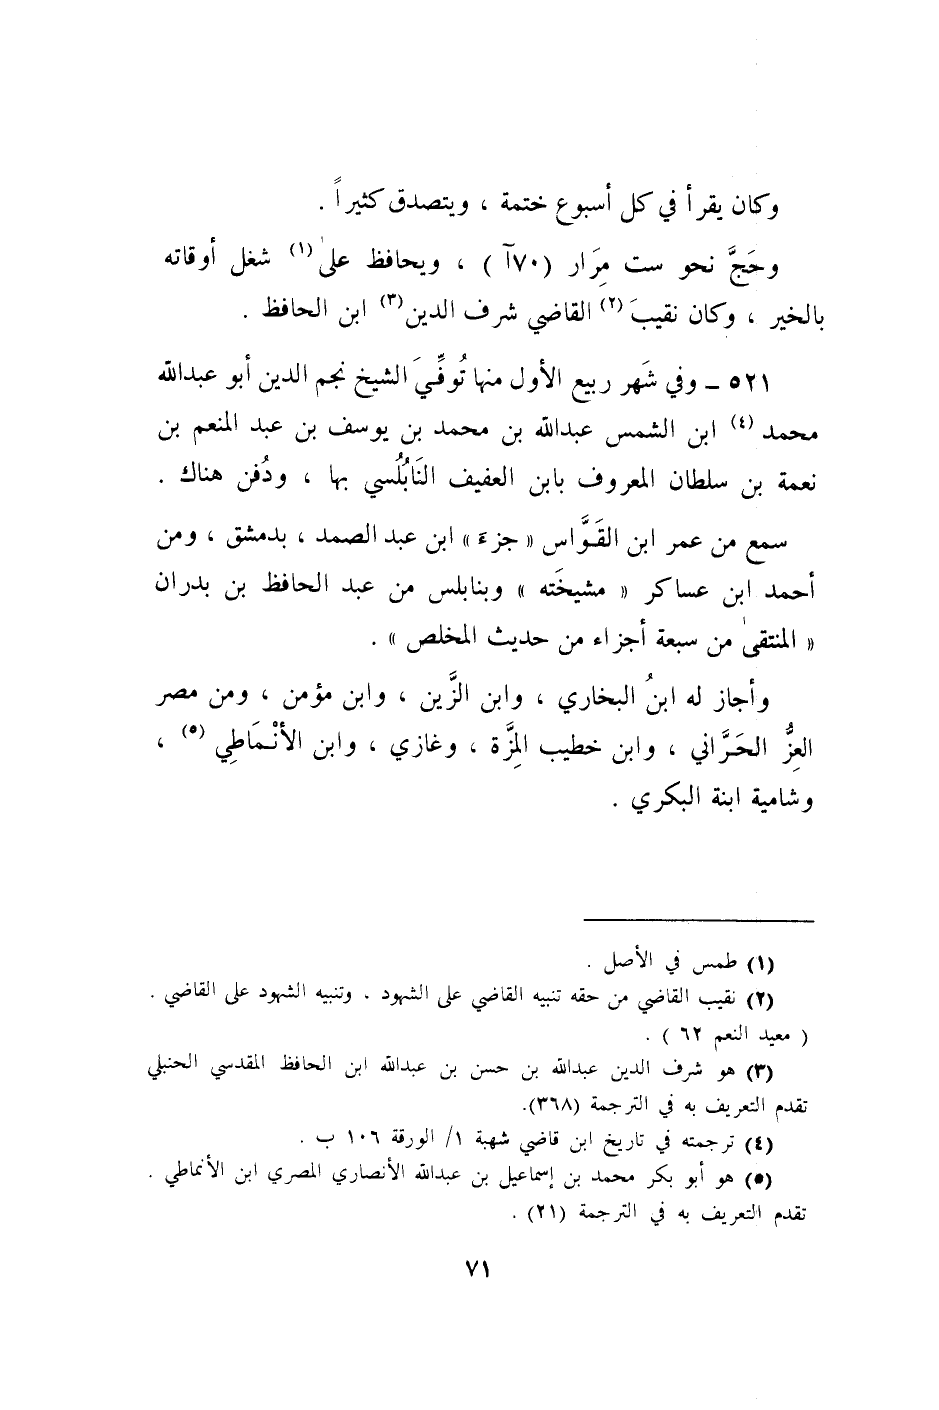 وكان يقرأ في كل أسبوع ختمة ، ويتصدق كثيراً .
وحَجَّ نحو ست مِرَار (٧٠آ) ، ويحافظ على (١) شغل أوقاته
بالخير ، وكان نقيبَ (٢) القاضي شرف الدين (٣) ابن الحافظ .
٥٢١ ــ وفي شَهر ربيع الأول منها تُوفِّيَ الشيخ نجم الدين أبو عبدالله
محمد (٤) ابن الشمس عبدالله بن محمد بن يوسف بن عبد المنعم بن
نعمة بن سلطان المعروف بابن العفيف النَابُلُسي بها ، ودُفن هناك .
سمع من عمر ابن القَوَّاس « جزءَ » ابن عبد الصمد ، بدمشق ، ومن
أحمد ابن عساكر « مشيخَته » وبنابلس من عبد الحافظ بن بدران
« المنتقىٰ من سبعة أجزاء من حديث المخلص » .
وأجاز له ابنُ البخاري ، وابن الزَّين ، وابن مؤمن ، ومن مصر
العِزُّ الحَرَّاني ، وابن خطيب المِزَّة ، وغازي ، وابن الأنْمَاطِي (٥) ،
وشامية ابنة البكري .
(١) طمس في الأصل .
(٢) نقيب القاضي من حقه تنبيه القاضي على الشهود . وتنبيه الشهود على القاضي .
( معيد النعم ٦٢ ) .
(٣) هو شرف الدين عبدالله بن حسن بن عبدالله ابن الحافظ المقدسي الحنبلي
تقدم التعريف به في الترجمة (٣٦٨).
(٤) ترجمته في تاريخ ابن قاضي شهبة ١/ الورقة ١٠٦ ب .
(٥) هو أبو بكر محمد بن إسماعيل بن عبدالله الأنصاري المصري ابن الأنماطي .
تقدم التعريف به في الترجمة (٢١) .
٧١